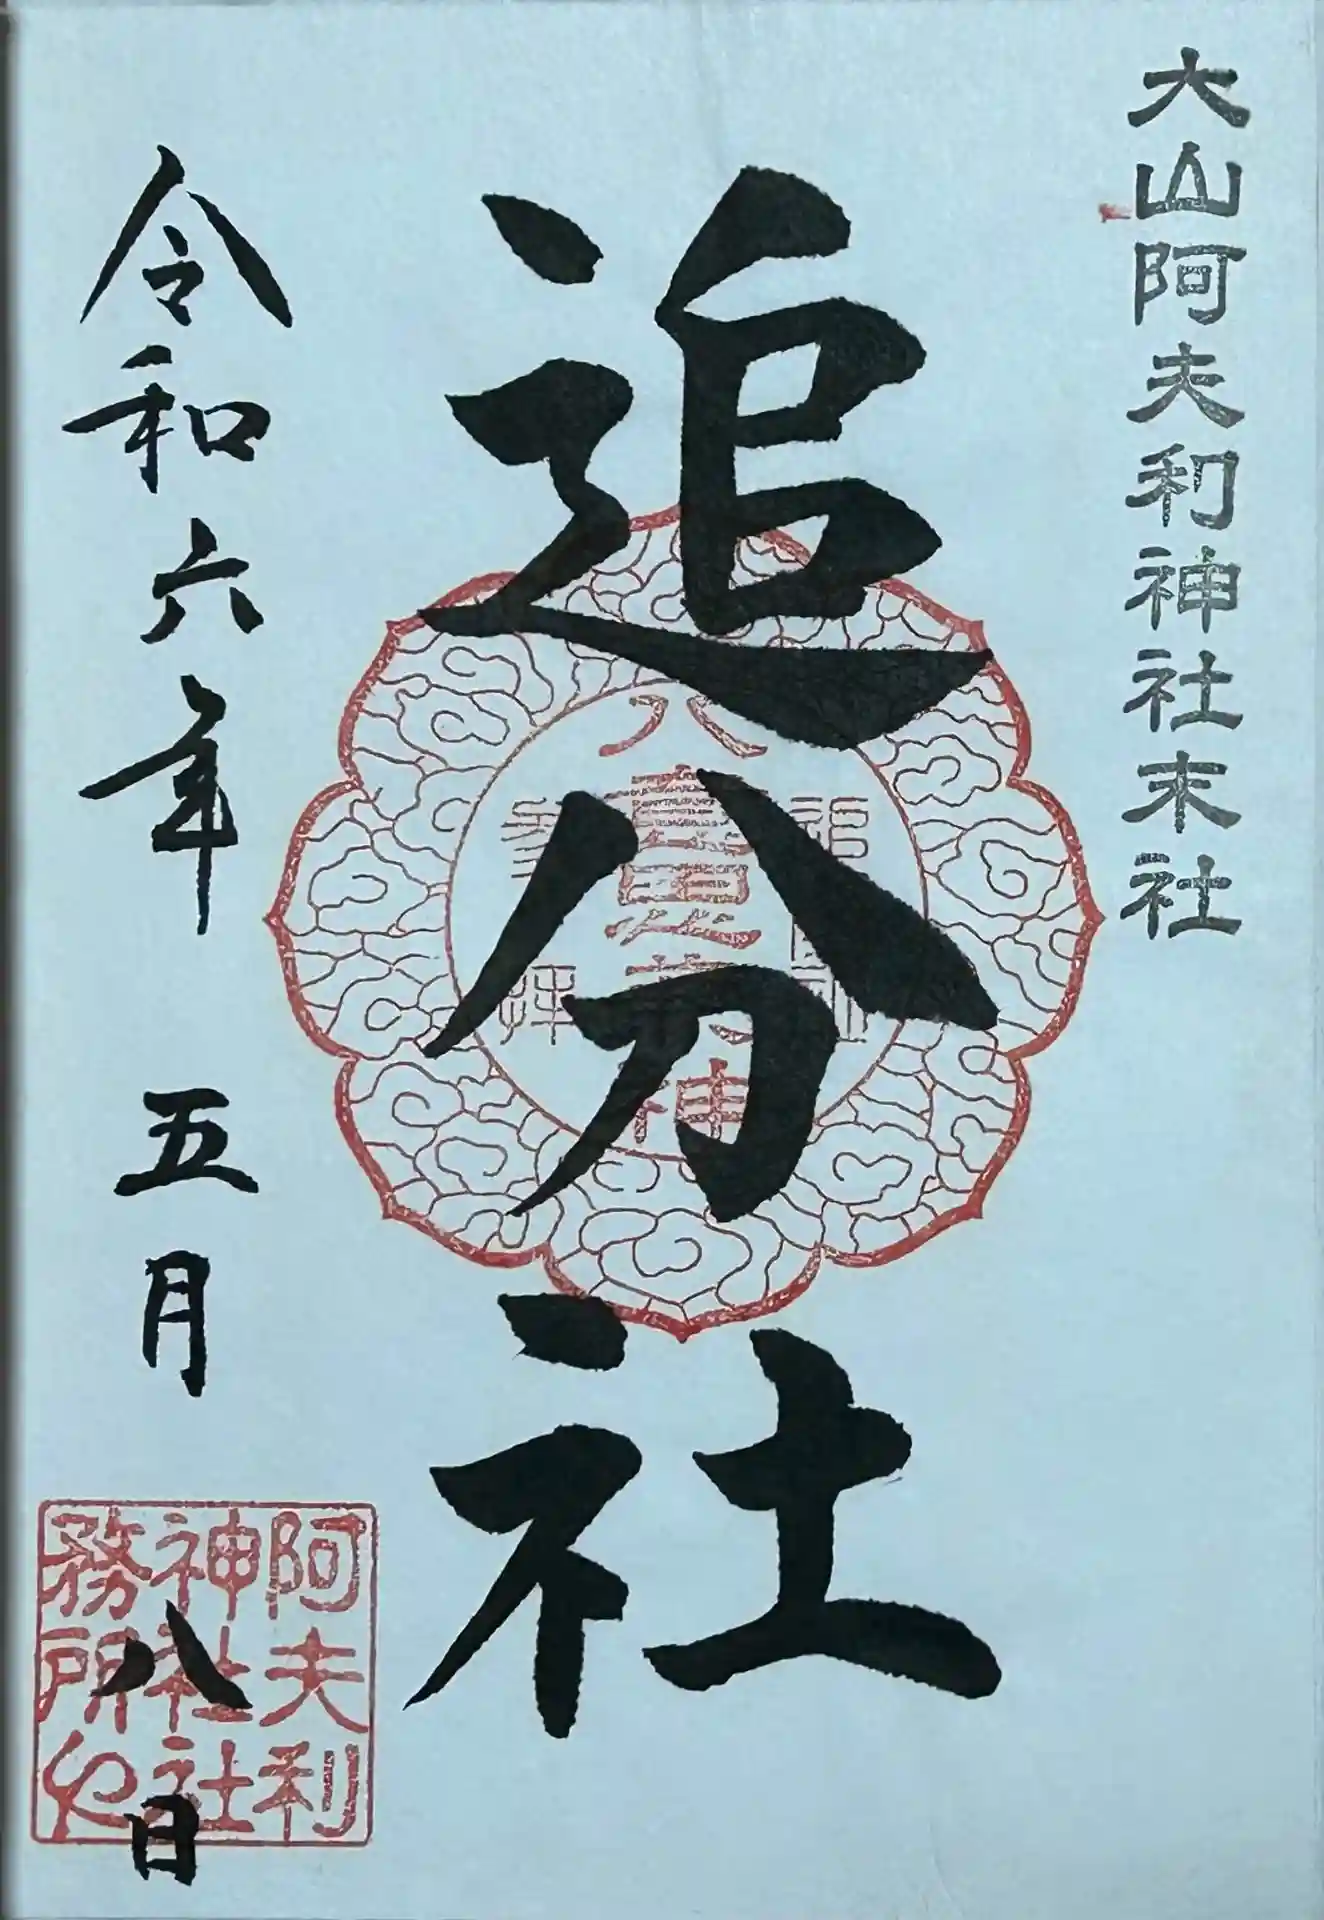 大山阿夫利神社末社
追分社
令和六年 五月 八日
阿夫利
神社社
務所也